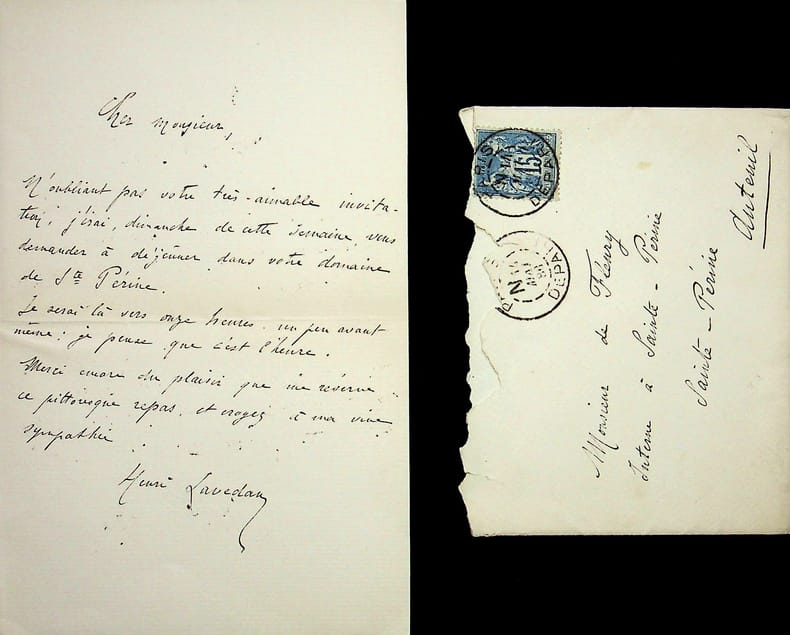 Cher monsieur,
N'oubliant pas votre très-aimable invita-
tion, j'irai, dimanche de cette semaine, vous
demander à déjeuner dans votre domaine
de Ste Périne.
Je serai là vers onze heures, un peu avant
même; je pense que c'est l'heure.
Merci encore du plaisir que me réserve
ce pittoresque repas, et croyez à ma vive
sympathie
Henri Lavedan
15
PARIS
DEPART
DEPA
N
Monsieur de Fleury
Interne à Sainte-Périne
Sainte-Périne
Auteuil